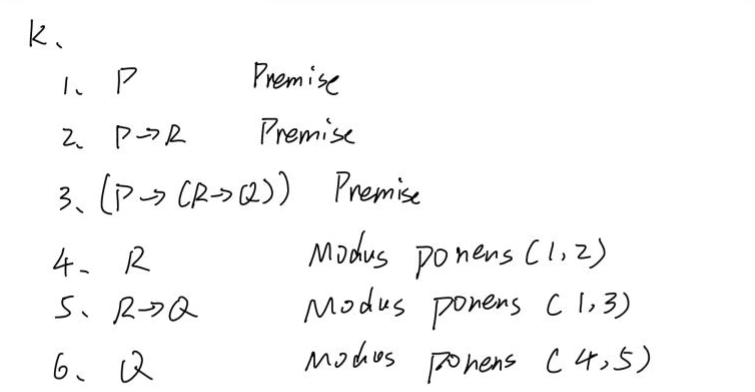 k、
1、 P Premise
2、 P→R Premise
3、 (P→(R→Q)) Premise
4- R Modus ponens (1,2)
5、 R→Q Modus ponens (1,3)
6、 Q Modus ponens (4,5)